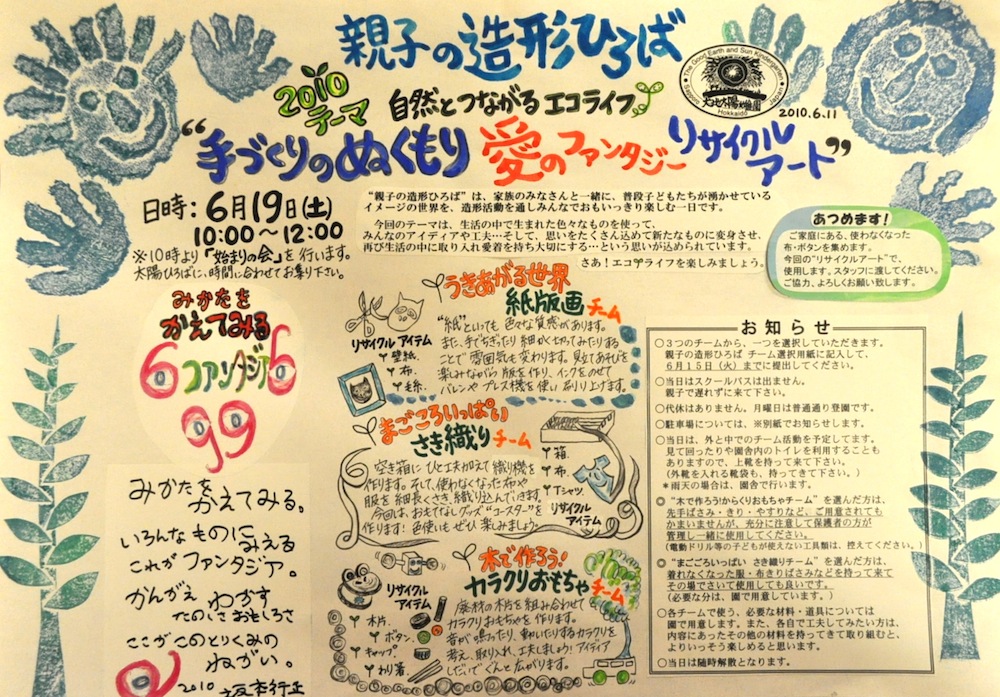 親子の造形ひろば
2010
テーマ
自然とつながるエコライフ
The Good Earth and Sun Kindergarten
Sapporo
Hokkaido
Japan
2010.6.11
“手づくりのぬくもり 愛のファンタジー リサイクル
アート”
日時：6月19日(土)
10:00～12:00
※10時より「始まりの会」を行います。
太陽ひろばに、時間に合わせてお集り下さい。
“親子の造形ひろば”は、家族のみなさんと一緒に、普段子どもたちが湧かせている
イメージの世界を、造形活動を通しみんなでおもいっきり楽しむ一日です。
今回のテーマは、生活の中で生まれた色々なものを使って、
みんなのアイディアや工夫…そして、思いをたくさん込めて新たなものに変身させ、
再び生活の中に取り入れ愛着を持ち大切にする…という思いが込められています。
さあ！エコライフを楽しみましょう。
あつめます！
ご家庭にある、使わなくなった
布・ボタンを集めます。
今回の“リサイクルアート”で、
使用します。スタッフに渡してください。
ご協力、よろしくお願い致します。
みかたを
かえてみる
6ファンタジア6
99
みかたを かえてみる。
いろんな ものに みえる
これが ファンタジア。
かんがえ わかす
たのしさ おもしろさ
ここがこのとりくみの
ねがい。
2010 坂本行正
うきあがる世界
紙版画チーム
リサイクル アイテム
壁紙
布
毛糸
“紙”といっても 色々な質感があります。
また、手でちぎったり 細かく切ってみたりする
ことで 雰囲気も変わります。見立てあそびを
楽しみながら 版を作り、インクをのせて
バレンや プレス機を使い 刷り上げます。
まごころいっぱい
さき織りチーム
空き箱に ひと工夫加えて 織り機を
作ります。そして、使わなくなった布や
服を 細長くさき、織り込んでいきます。
今回は、おもてなしグッズ“コースター”を
作ります！色使いも ぜひ 楽しみましょう
箱
布
Tシャツ
リサイクル
アイテム
木で作ろう！
カラクリおもちゃ
チーム
リサイクル
アイテム
木片
ボタン
キャップ
わり箸
廃材の木片を 組み合わせて
カラクリおもちゃを 作ります。
音が鳴ったり、動いたりするカラクリを
考え、取り入れ、工夫しましょう！アイディア
しだいで ぐんと 広がります。
お知らせ
○３つのチームから、一つを選択していただきます。
親子の造形ひろば チーム選択用紙に記入して、
６月１５日（火）までに提出してください。
○当日はスクールバスは出ません。
親子で遅れずに来て下さい。
○代休はありません。月曜日は普通通り登園です。
○駐車場については、※別紙でお知らせします。
○当日は、外と中でのチーム活動を予定してます。
見て回ったりや園舎内のトイレを利用することも
ありますので、上靴を持って来て下さい。
（外靴を入れる靴袋も、持ってきて下さい。）
＊雨天の場合は、園舎で行います。
◎ “木で作ろう！からくりおもちゃチーム”を選んだ方は、
先手ばさみ・きり・やすりなど、ご用意されても
かまいませんが、充分に注意して保護者の方が
管理し一緒に使用してください。
（電動ドリル等の子どもが使えない工具類は、控えてください。）
◎ “まごころいっぱい さき織りチーム”を選んだ方は、
着れなくなった服・布きりばさみなどを持って来て
その場でさいて使用しても良いです。
（必要な分は、園で用意しています。）
○各チームで使う、必要な材料・道具については
園で用意します。また、各自で工夫してみたい方は、
内容にあったその他の材料を持ってきて取り組むと、
よりいっそう楽しめると思います。
○当日は随時解散となります。